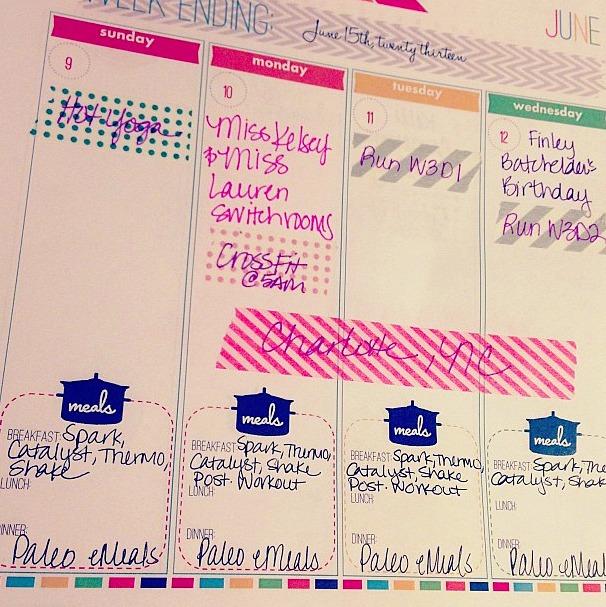 WEEK ENDING:
June 15th, twenty thirteen
JUNE
sunday
9
Hot Yoga
monday
10
Miss Kelsey
& Miss
Lauren
Switch rooms
CrossFit
@ 5AM
tuesday
11
Run W3D1
wednesday
12 Finley
Batchelder's
Birthday
Run W3D2
Charlotte, NC
meals
BREAKFAST: Spark,
Catalyst, Thermo,
Shake
LUNCH:
DINNER:
Paleo eMeals
meals
BREAKFAST: Spark, Thermo,
Catalyst, Shake
Post. Workout
LUNCH:
DINNER:
Paleo eMeals
meals
BREAKFAST: Spark, Thermo,
Catalyst, Shake
Post. Workout
LUNCH:
DINNER:
Paleo eMeals
meals
BREAKFAST: Spark, The
Catalyst, Shak
LUNCH:
DINNER:
Paleo eMeal